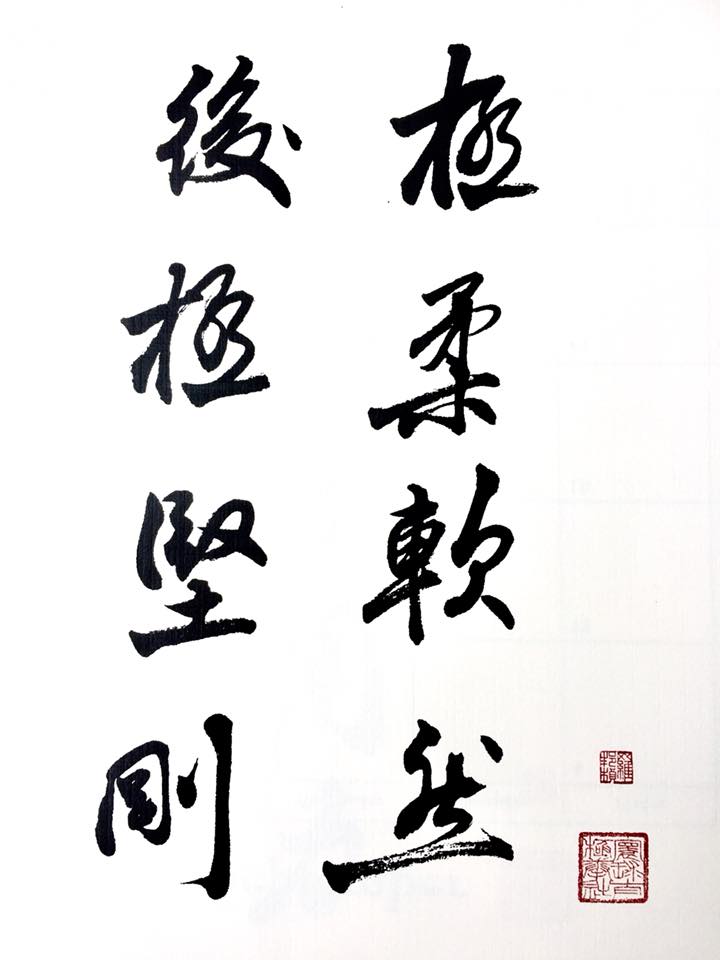 極柔軟然
後極堅剛